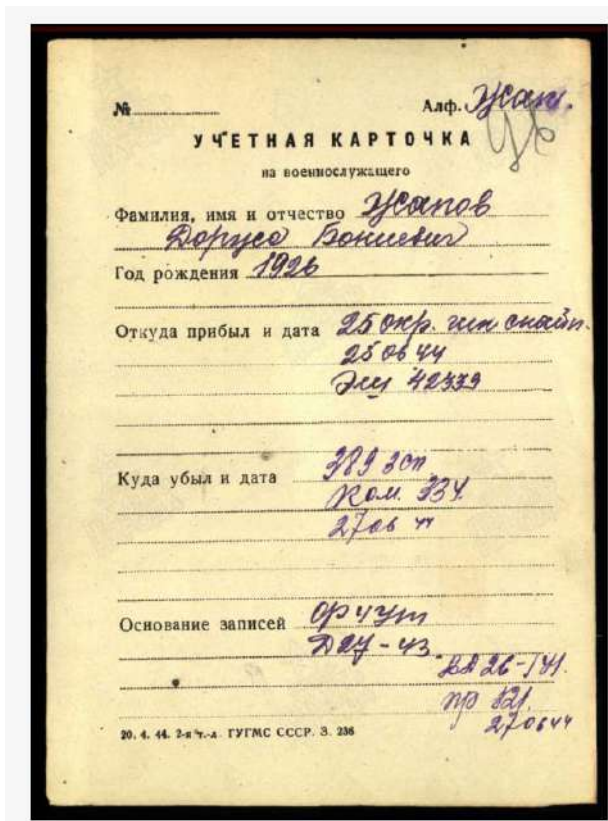 № Алф. Жап.
УЧЕТНАЯ КАРТОЧКА
на военнослужащего
Фамилия, имя и отчество Жапов
Доржо
Год рождения 1926
Откуда прибыл и дата 25 окр. шк снайп.
25 06 44
Эш 42339
Куда убыл и дата 389 зсп
Ком. 334
27 06 44
Основание записей
Д 27-43
26-
пр 821.
270644
20. 4. 44. 2-я т.-л. ГУГМС СССР. З. 236